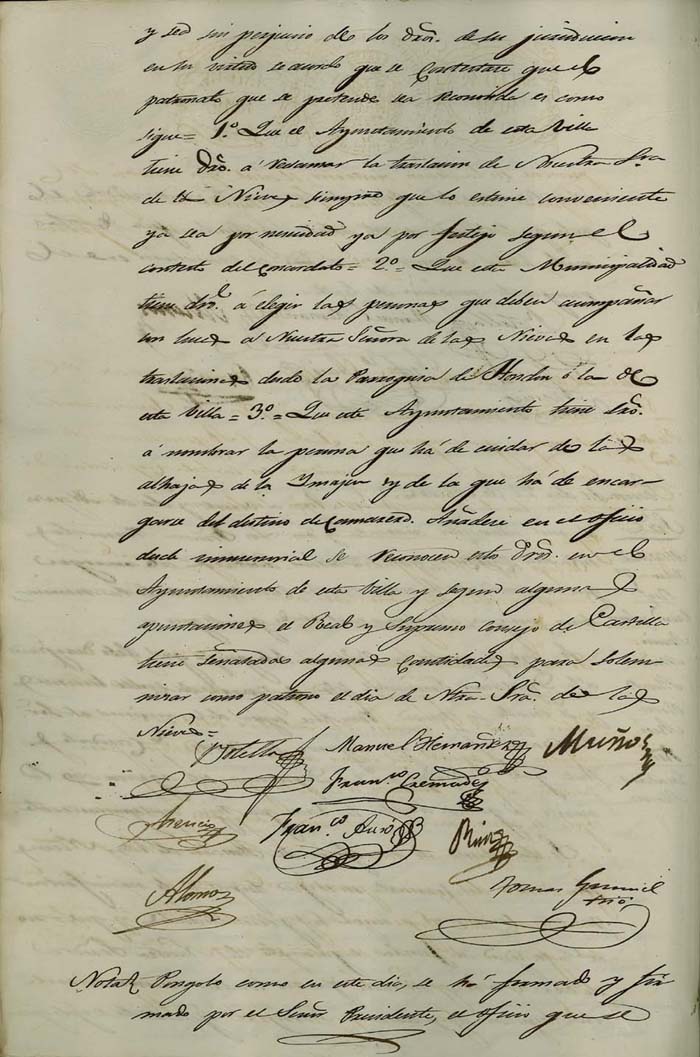 y sea sin perjuicio de los dros. de su jurisdiccion
en su virtud se acordo que se Contestase que el
patronato que se pretende sea reconocido es como
sigue= 1.º Que el Ayuntamiento de esta Villa
tiene dro. á reclamar la traslacion de Nuestra Sra
de las Nieves siempre que lo estime conveniente
ya sea por necesidad ya por festejo segun el
contesto del Concordato= 2.º= Que esta Municipalidad
tiene dro. á elegir las personas que deben acompañar
con luces á Nuestra Señora de las Nieves en las
traslaciones desde la Parroquia de Hondon á la de
esta Villa= 3.º= Que este Ayuntamiento tiene dro.
á nombrar la persona que há de cuidar de las
alhajas de la Ymajen y de la que há de encar-
garse del destino de Camarero. Añadese en el oficio
desde inmemorial se reconocen estos dros. en el
Ayuntamiento de esta Villa y segun algunas
apuntaciones el Real y Supremo Consejo de Castilla
tiene señaladas algunas Cantidades para solem-
nizar como patrono el dia de Ntra. Sra. de las
Nieves=
Botella Manuel Hernandez Muñoz
Fran.co Cremades
Asencio Fran.co Auró
Alonso Tomas
Srio.
Nota Pongolo como en este dia, se há formado y fir
mado por el Señor Presidente, el oficio que se